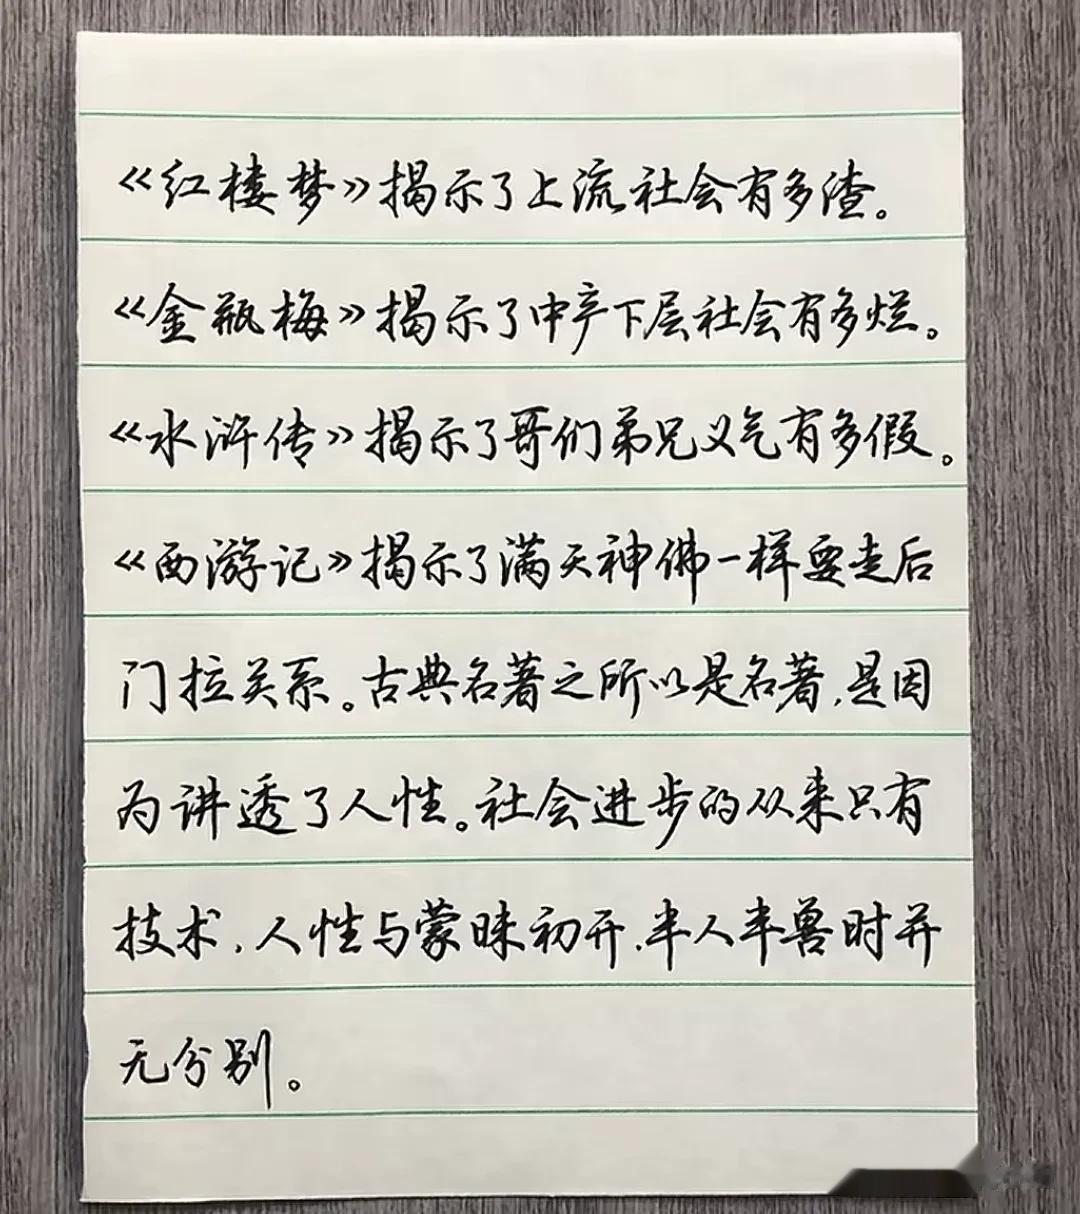 《红楼梦》揭示了上流社会有多渣。
《金瓶梅》揭示了中产下层社会有多烂。
《水浒传》揭示了哥们弟兄义气有多假。
《西游记》揭示了满天神佛一样要走后
门拉关系。古典名著之所以是名著,是因
为讲透了人性。社会进步的从来只有
技术,人性与蒙昧初开,半人半兽时并
无分别。